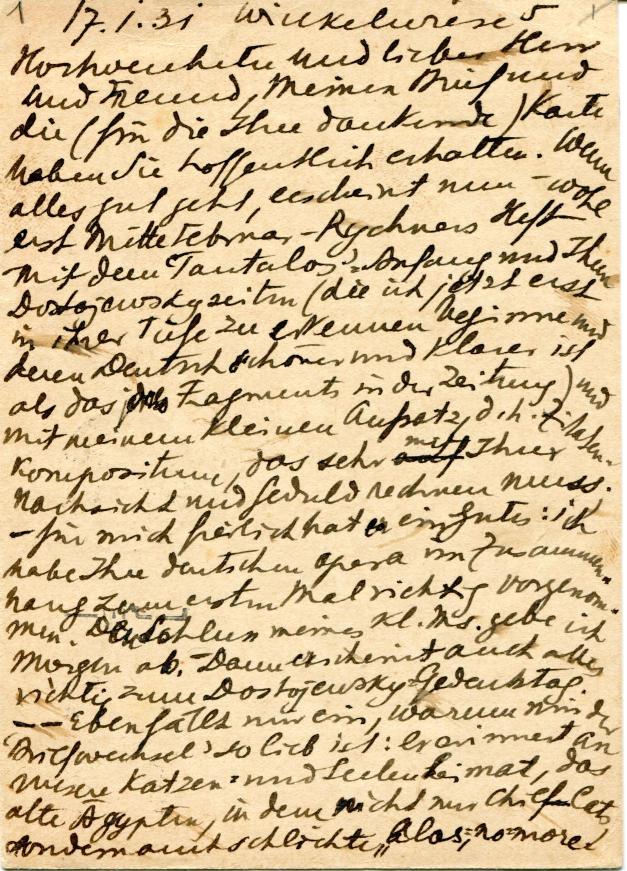 17.1.31 Winkelwiese 5
Hochverehrter und lieber Herr
und Freund, Meinen Brief und
die (für die Ihre dankende) Karte
haben Sie hoffentlich erhalten. Wenn
alles gut geht, erscheint nun – wohl
erst Mitte Februar – Rychners Heft
mit dem 'Tantalos'-Anfang und Ihren
Dostojewskyzeiten (die ich jetzt erst
in ihrer Tiefe zu erkennen beginne und
deren Deutsch schöner und klarer ist
als das des Fragments in der Zeitung) und
mit meinem kleinen Aufsatz, d.h. Zitaten-
komposition, das sehr mit Ihrer
Nachsicht und Geduld rechnen muss.
– für mich freilich hat er ein Gutes: ich
habe Ihre deutschen opera im Zusammen-
hang zum ersten Mal richtig vorgenom-
men. Den Schluss meines kl. Ms. gebe ich
morgen ab. – Dann erscheint auch alles
richtig zum Dostojewsky-Gedenktag.
–– Ebenfalls nur ein, warum mir der
'Briefwechsel' so lieb ist: Er erinnert an
unsere Katzen- und Seelenheimat, das
alte Ägypten, in dem nicht nur Chief-Cats
sondern auch schlichte „Alas, no-more!